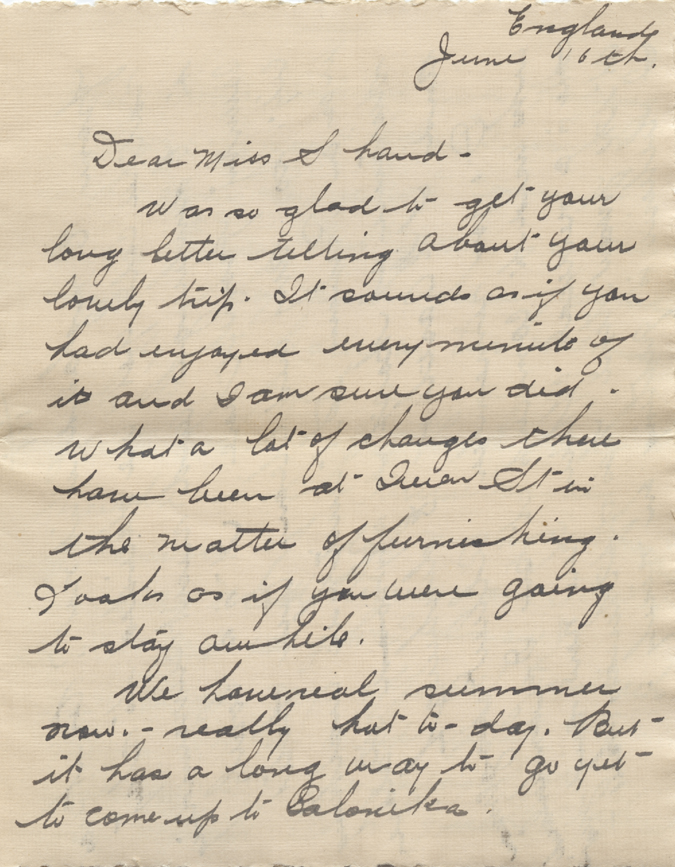 England
June 16th.
Dear Miss Shand -
Was so glad to get your
long letter telling about your
lovely trip. It sounds as if you
had enjoyed every minute of
it and I am sure you did.
What a lot of changes there
have been at St in
the matter of furnishing.
Looks as if you were going
to stay awhile.
We have real summer
now. - really hot to-day. But
it has a long way to go yet
to come up to Salonika.